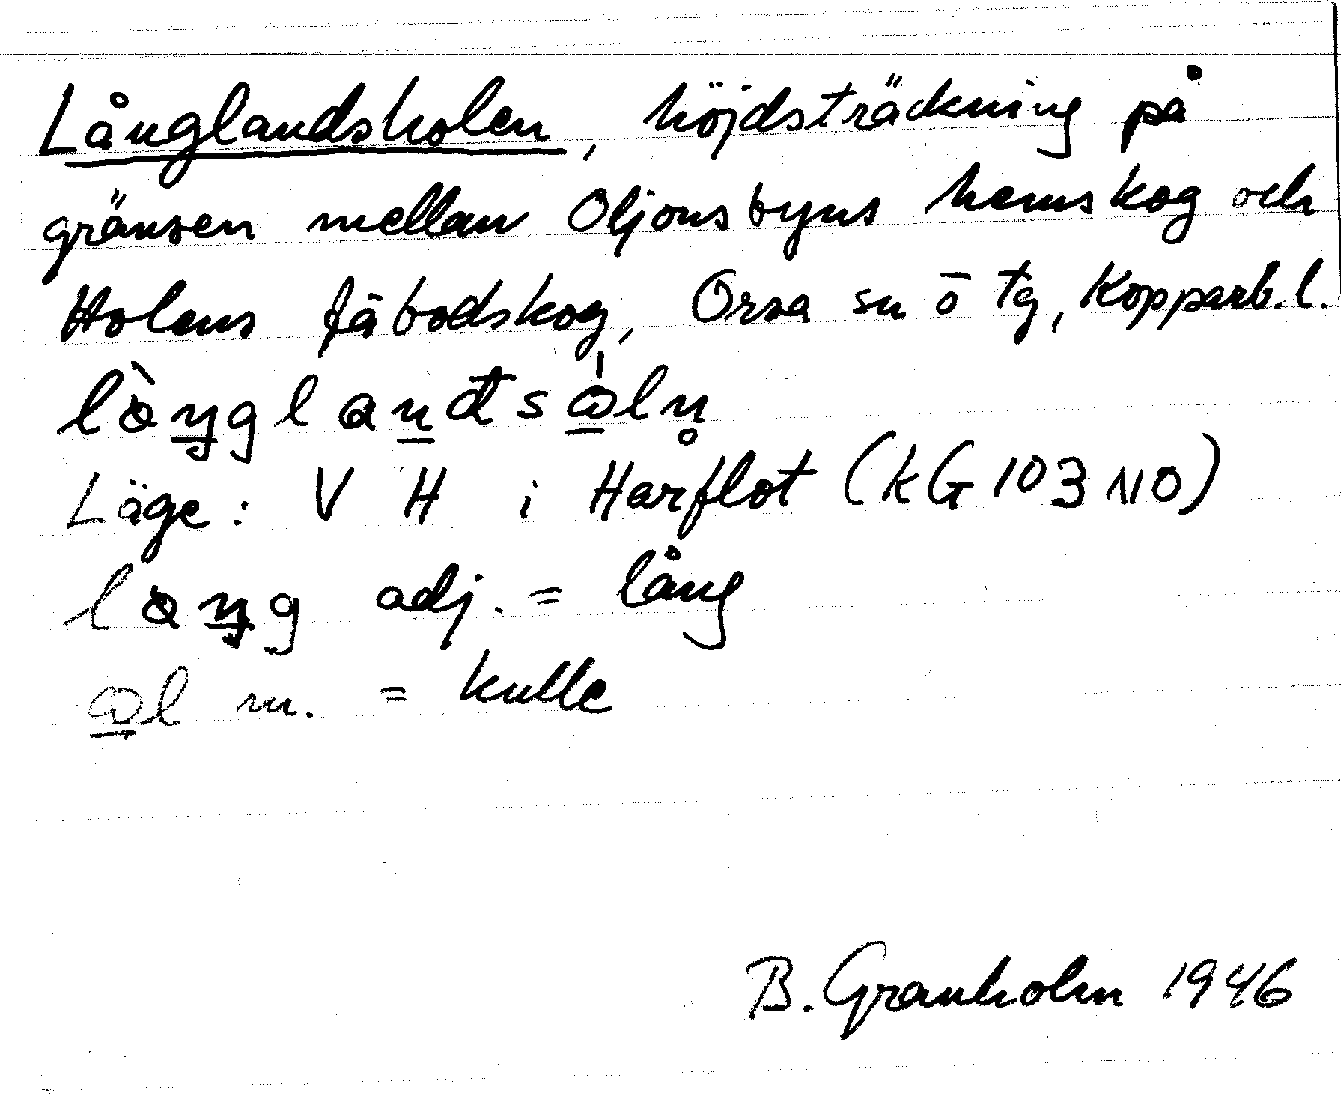 Långlandsholen, höjdsträckning på
gränsen mellan Oljonsbyns hemskog och
Holens fäbodskog, Orsa sn ö tg, Kopparb. l.
Läge: V H i Harflot (kG 103 NO)
adj. = lång
m. = kulle
B. Granholm 1946